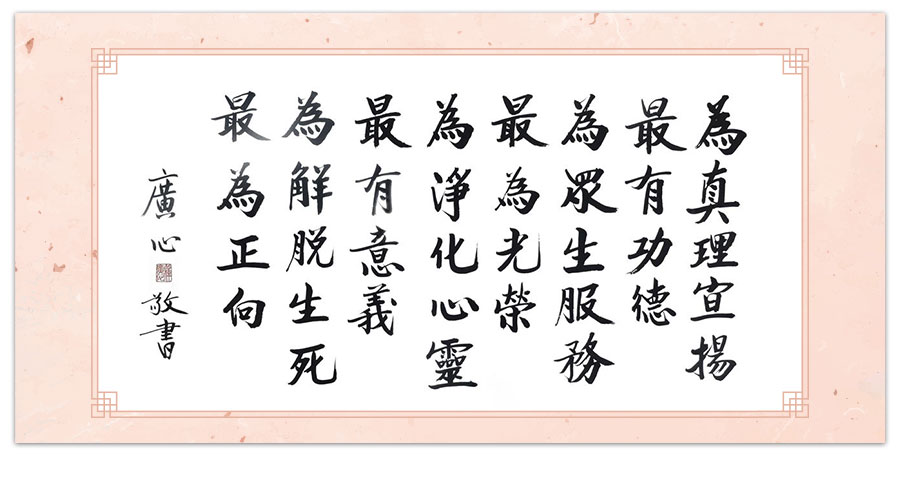 為真理宣揚
最有功德
為眾生服務
最為光榮
為淨化心靈
最有意義
為解脱生死
最為正向
廣心 敬書